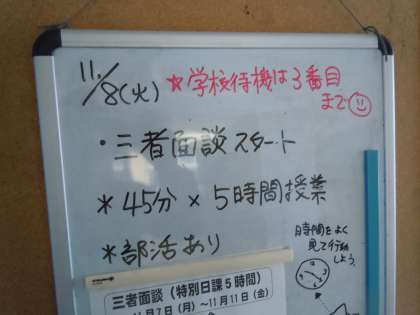 11/8(火) ☆学校待機は3番目
まで☺
・三者面談スタート
*45分×5時間授業
*部活あり
時間をよく
見て行動
しよう。
三者面談(特別日課5時間)
11月7日(月)~11月11日(金)